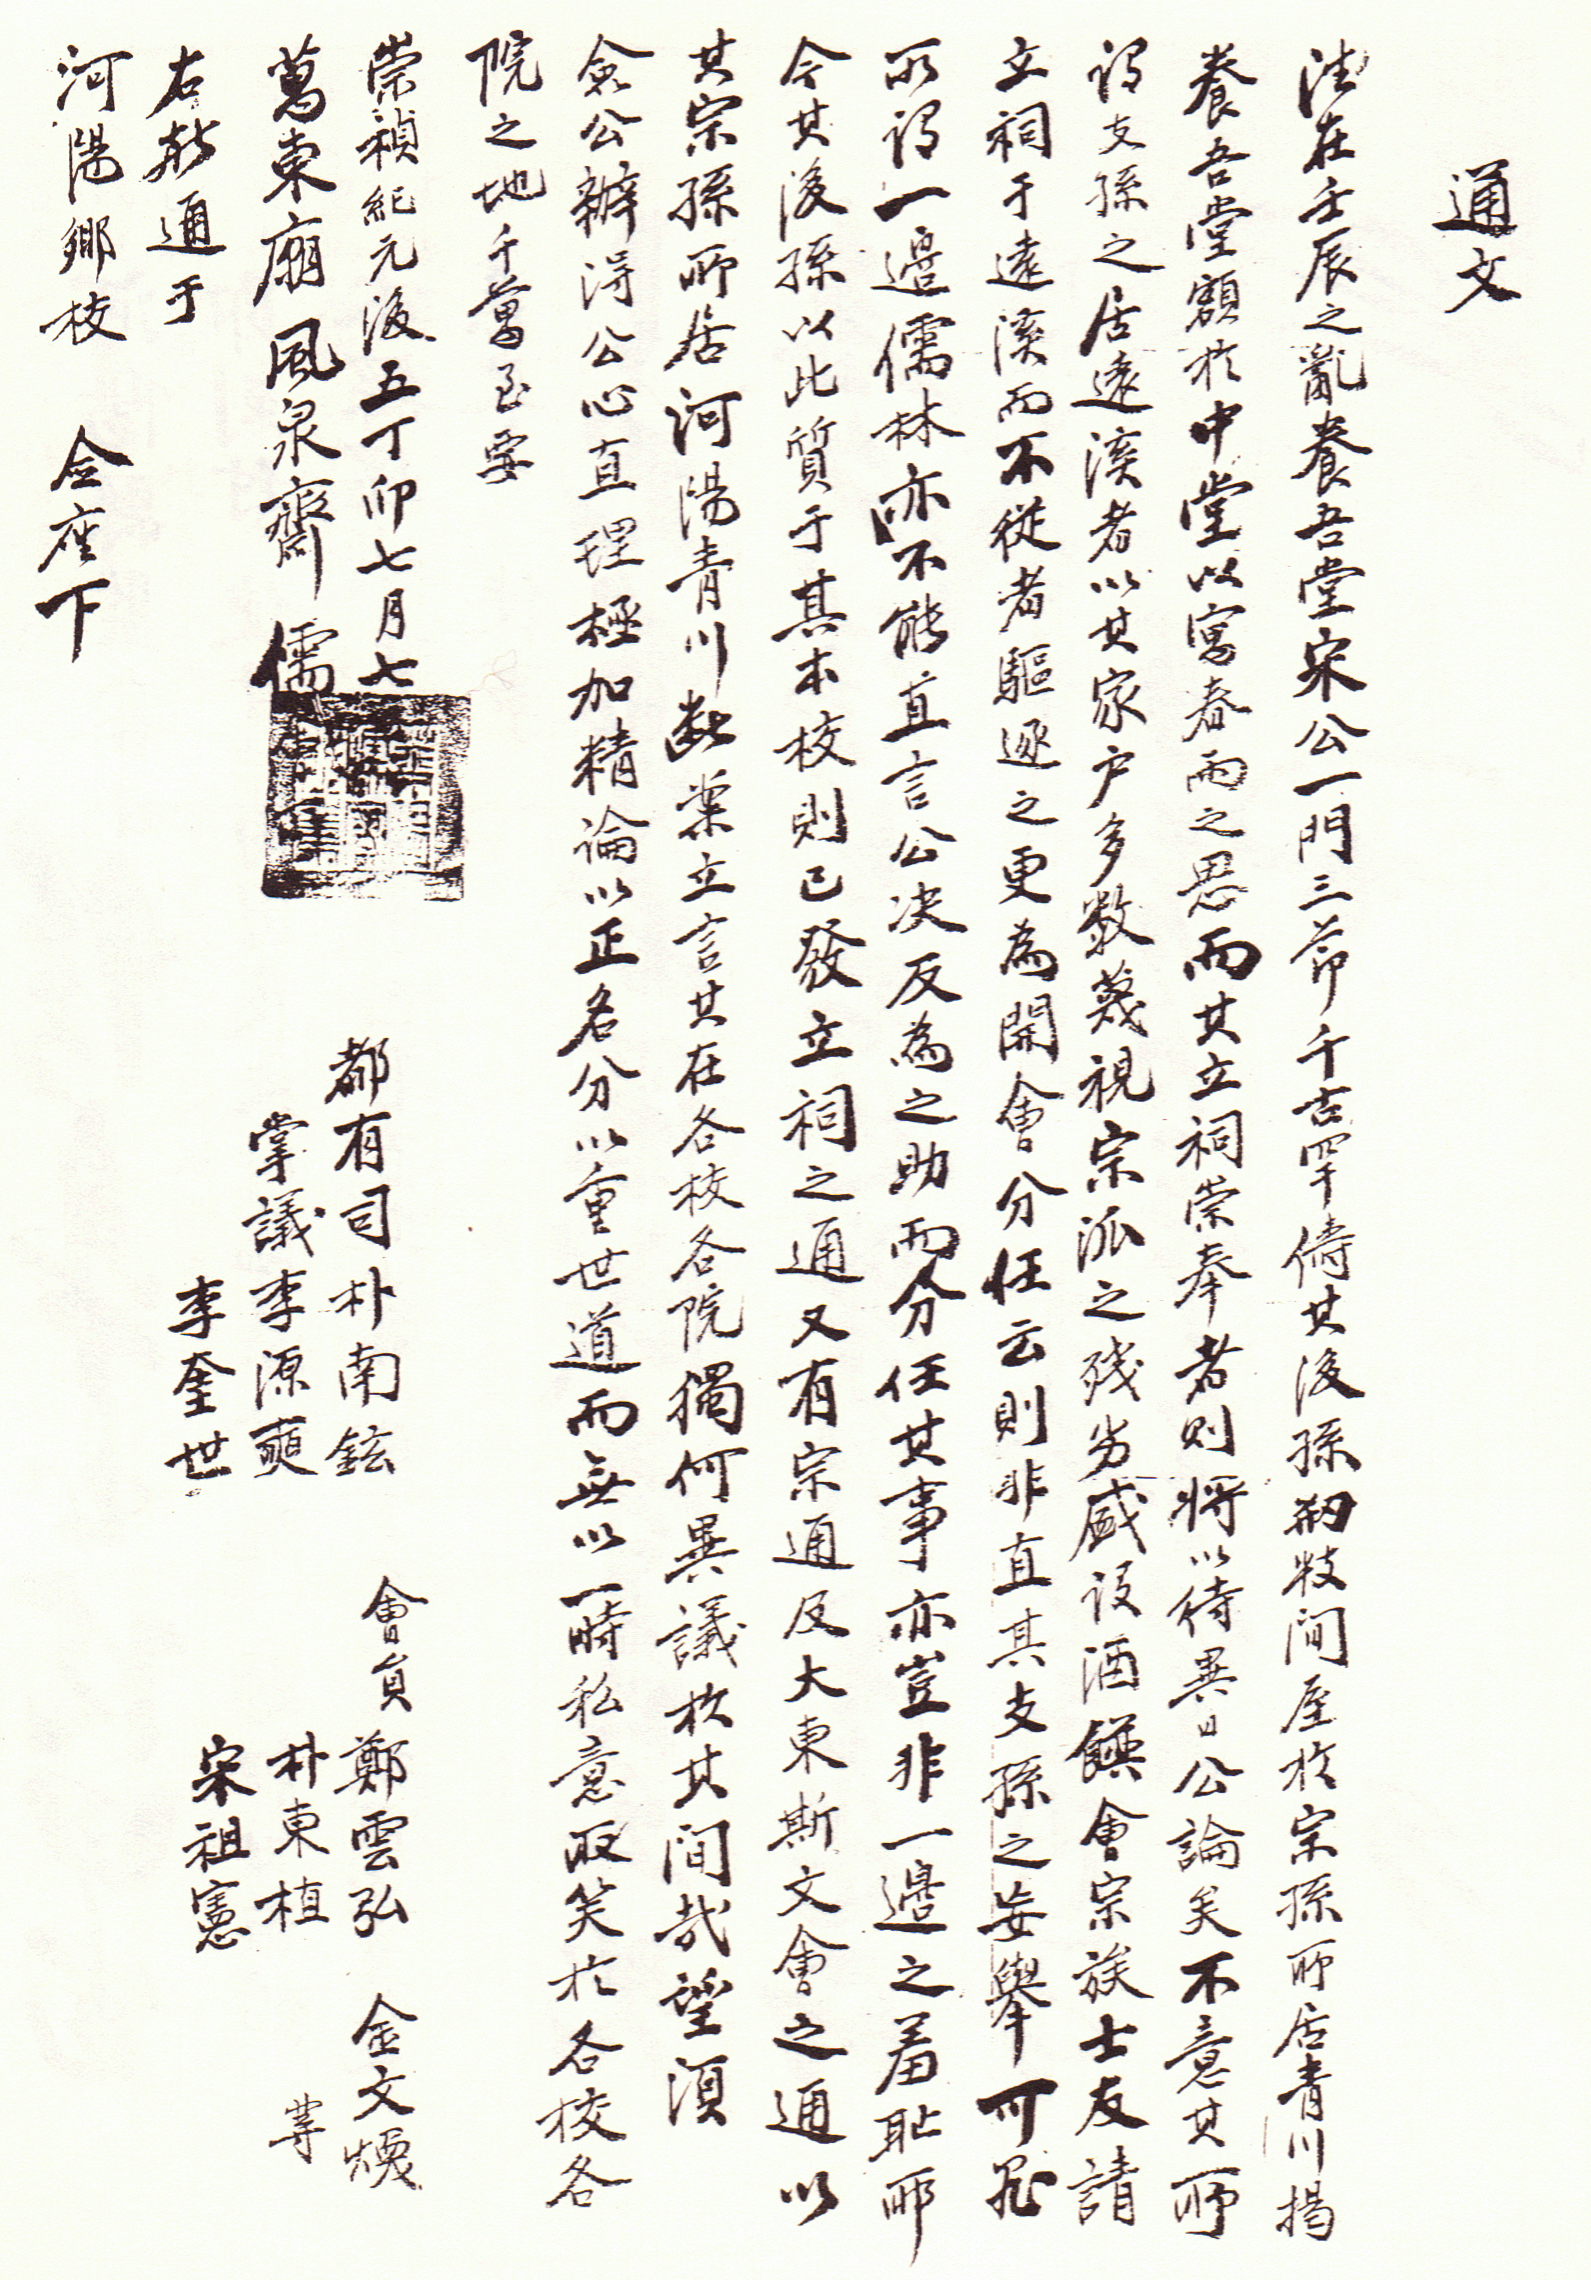 通文
洼在壬辰之亂養吾堂宋公一門三節千古罕儔其後孫刱數間屋於宗孫所居青川揭
養吾堂額於中堂以寓春雨之思而其立祠崇奉者則將以待異日公論矣不意其所
謂支孫之居遠溪者以其家戶多數蔑視宗派之殘劣盛設酒饌會宗族士友請
立祠于遠溪而不從者驅逐之更為開會分任云則非直其支孫之妄擧可駭
所謂一邊儒林亦不能直言公決反為之助而分任其事亦豈非一邊之羞恥耶
今其後孫以此質于其本校則已發立祠之通又有宗通及大東斯文會之通以
其宗孫所居河陽青川斷案立言其在各校各院獨何異議於其間哉望須
僉公辦得公心直理極加精論以正名分以重世道而無以一時私意取笑於各校各
院之地千萬至要
崇禎紀元後五丁卯七月七
萬東廟風泉齋儒
都有司朴南鉉
掌議李源奭
李奎世
會員鄭雲弘 金文煥
朴東植
宋祖憲 等
右敬通于
河陽鄉校 僉座下